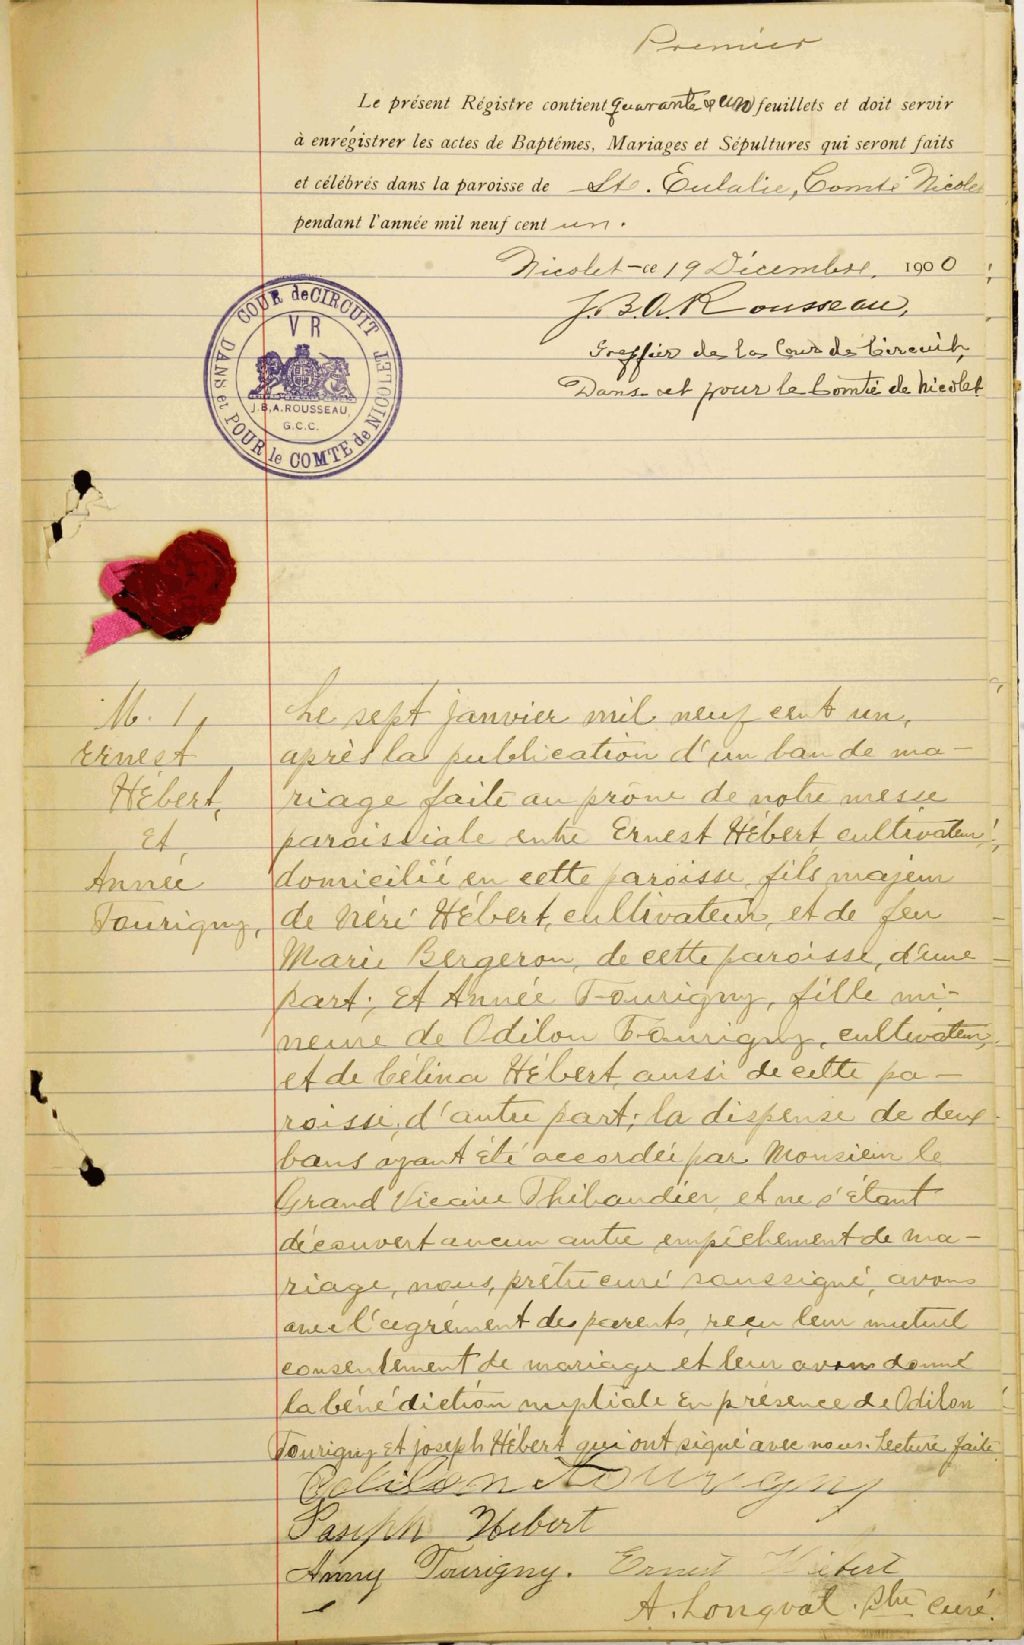 Premier
Le présent Régistre contient quarante & un feuillets et doit servir
à enrégistrer les actes de Baptêmes, Mariages et Sépultures qui seront faits
et célébrés dans la paroisse de Ste. Eulalie, Comté Nicolet
pendant l'année mil neuf cent un.
Nicolet - ce 19 Décembre, 1900
J. B. A. Rousseau,
Greffier de la Cour de Circuit,
Dans et pour le Comté de Nicolet
COUR de CIRCUIT
DANS et POUR le COMTE de NICOLET
V R
J.B.A. ROUSSEAU,
G.C.C.
M. 1,
Ernest
Hébert,
Et
Année
Tourigny,
Le sept janvier mil neuf cent un,
après la publication d'un ban de ma-
riage faite au prône de notre messe
paroissiale entre Ernest Hébert, cultivateur,
domicilié en cette paroisse, fils majeur
de Néré Hébert, cultivateur, et de feu
Marie Bergeron, de cette paroisse, d'une
part; Et Année Tourigny, fille mi-
neure de Odilon Tourigny, cultivateur,
et de Célina Hébert, aussi de cette pa-
roisse, d'autre part; la dispense de deux
bans ayant été accordée par Monsieur le
Grand Vicaire Thibaudier, et ne s'étant
découvert aucun autre empêchement de ma-
riage, nous, prêtre curé soussigné, avons
avec l'agrément des parents, reçu leur mutuel
consentement de mariage et leur avons donné
la bénédiction nuptiale En présence de Odilon
Tourigny Et joseph Hébert qui ont signé avec nous. Lecture faite
Odilon Tourigny
Joseph Hebert
Anny Tourigny. Ernest Hebert
A. Longval. ptre curé.